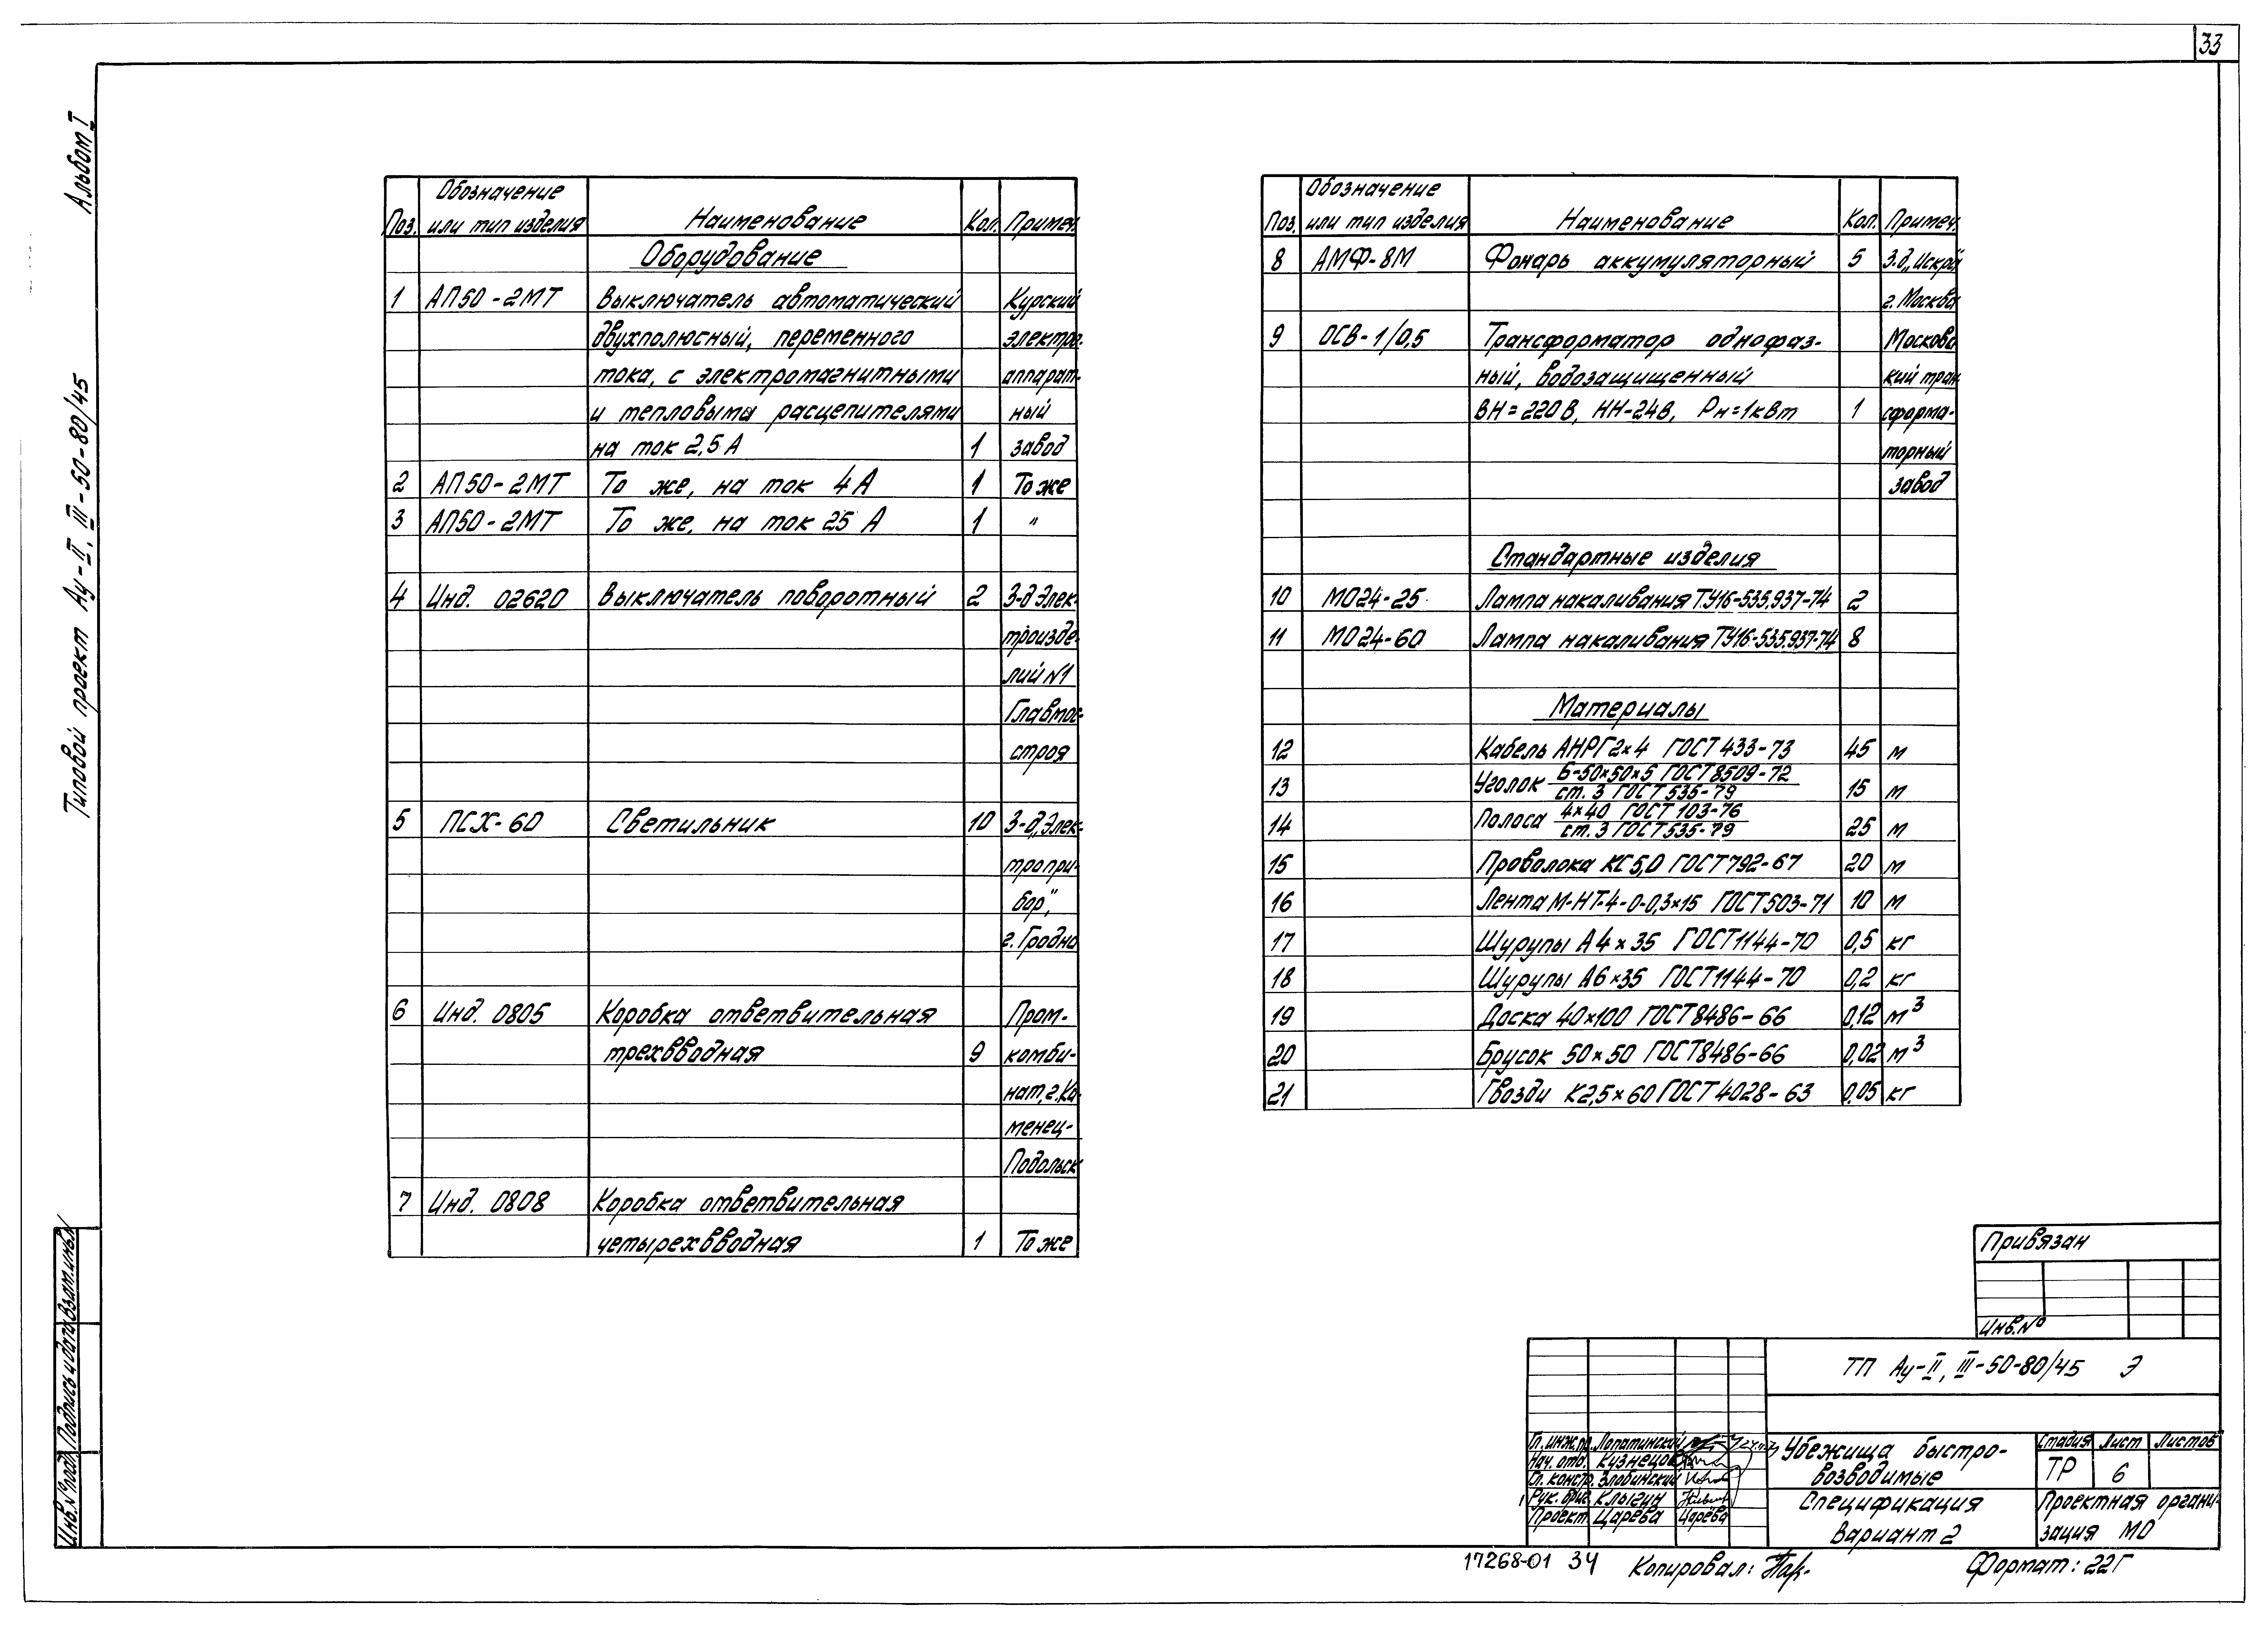 33
Альбом I
Типовой проект Ау-II, III-50-80/45
Поз. Обозначение или тип изделия Наименование Кол. Примеч.
Оборудование
1 АП50-2МТ Выключатель автоматический Курский
двухполюсный, переменного электро-
тока, с электромагнитными аппарат-
и тепловыма расцепителями ный
на ток 2,5 А 1 завод
2 АП50-2МТ То же, на ток 4 А 1 То же
3 АП50-2МТ То же, на ток 25 А 1 "
4 Инд. 02620 Выключатель поворотный 2 З-д Элек-
троизде-
лий N1
Главмос-
строя
5 ПСХ-60 Светильник 10 З-д „Элек-
тропри-
бор",
г. Гродно
6 Инд. 0805 Коробка ответвительная Пром-
трехвводная 9 комби-
нат, г. Ка-
менец-
Подольск
7 Инд. 0808 Коробка ответвительная
четырехвводная 1 То же
Поз. Обозначение или тип изделия Наименование Кол. Примеч.
8 АМФ-8М Фонарь аккумуляторный 5 З-д „Искра"
г. Москва
9 ОСВ-1/0,5 Трансформатор однофаз- Москов
ный, водозащищенный кий тран
ВН=220В, НН-24В, Рн=1кВт 1 сформа-
торный
завод
Стандартные изделия
10 МО24-25 Лампа накаливания ТУ16-535.937-74 2
11 МО24-60 Лампа накаливания ТУ16-535.937-74 8
Материалы
12 Кабель АНРГ 2×4 ГОСТ 433-73 45 м
13 Уголок Б-50×50×5 ГОСТ 8509-72 / ст. 3 ГОСТ 535-79 15 м
14 Полоса 4×40 ГОСТ 103-76 / ст. 3 ГОСТ 535-79 25 м
15 Проволока КС 5,0 ГОСТ 792-67 20 м
16 Лента М-НТ-4-0-0,3×15 ГОСТ 503-71 10 м
17 Шурупы А4×35 ГОСТ 1144-70 0,5 кг
18 Шурупы А6×35 ГОСТ 1144-70 0,2 кг
19 Доска 40×100 ГОСТ 8486-66 0,12 м³
20 Брусок 50×50 ГОСТ 8486-66 0,02 м³
21 Гвозди К2,5×60 ГОСТ 4028-63 0,05 кг
Инв. № подл. Подпись и дата Взам. инв. №
Привязан
Инв. №
ТП Ау-II, III-50-80/45 Э
Гл. инж. пр. Лопатинский
Нач. отд. Кузнецов
Гл. констр. Злобинский
Рук. бриг. Клыгин
Проект. Царёва Царёва
Убежища быстро-
возводимые
Стадия Лист Листов
ТР 6
Спецификация
Вариант 2
Проектная органи-
зация МО
17268-01 34
Копировал:
Формат: 22Г